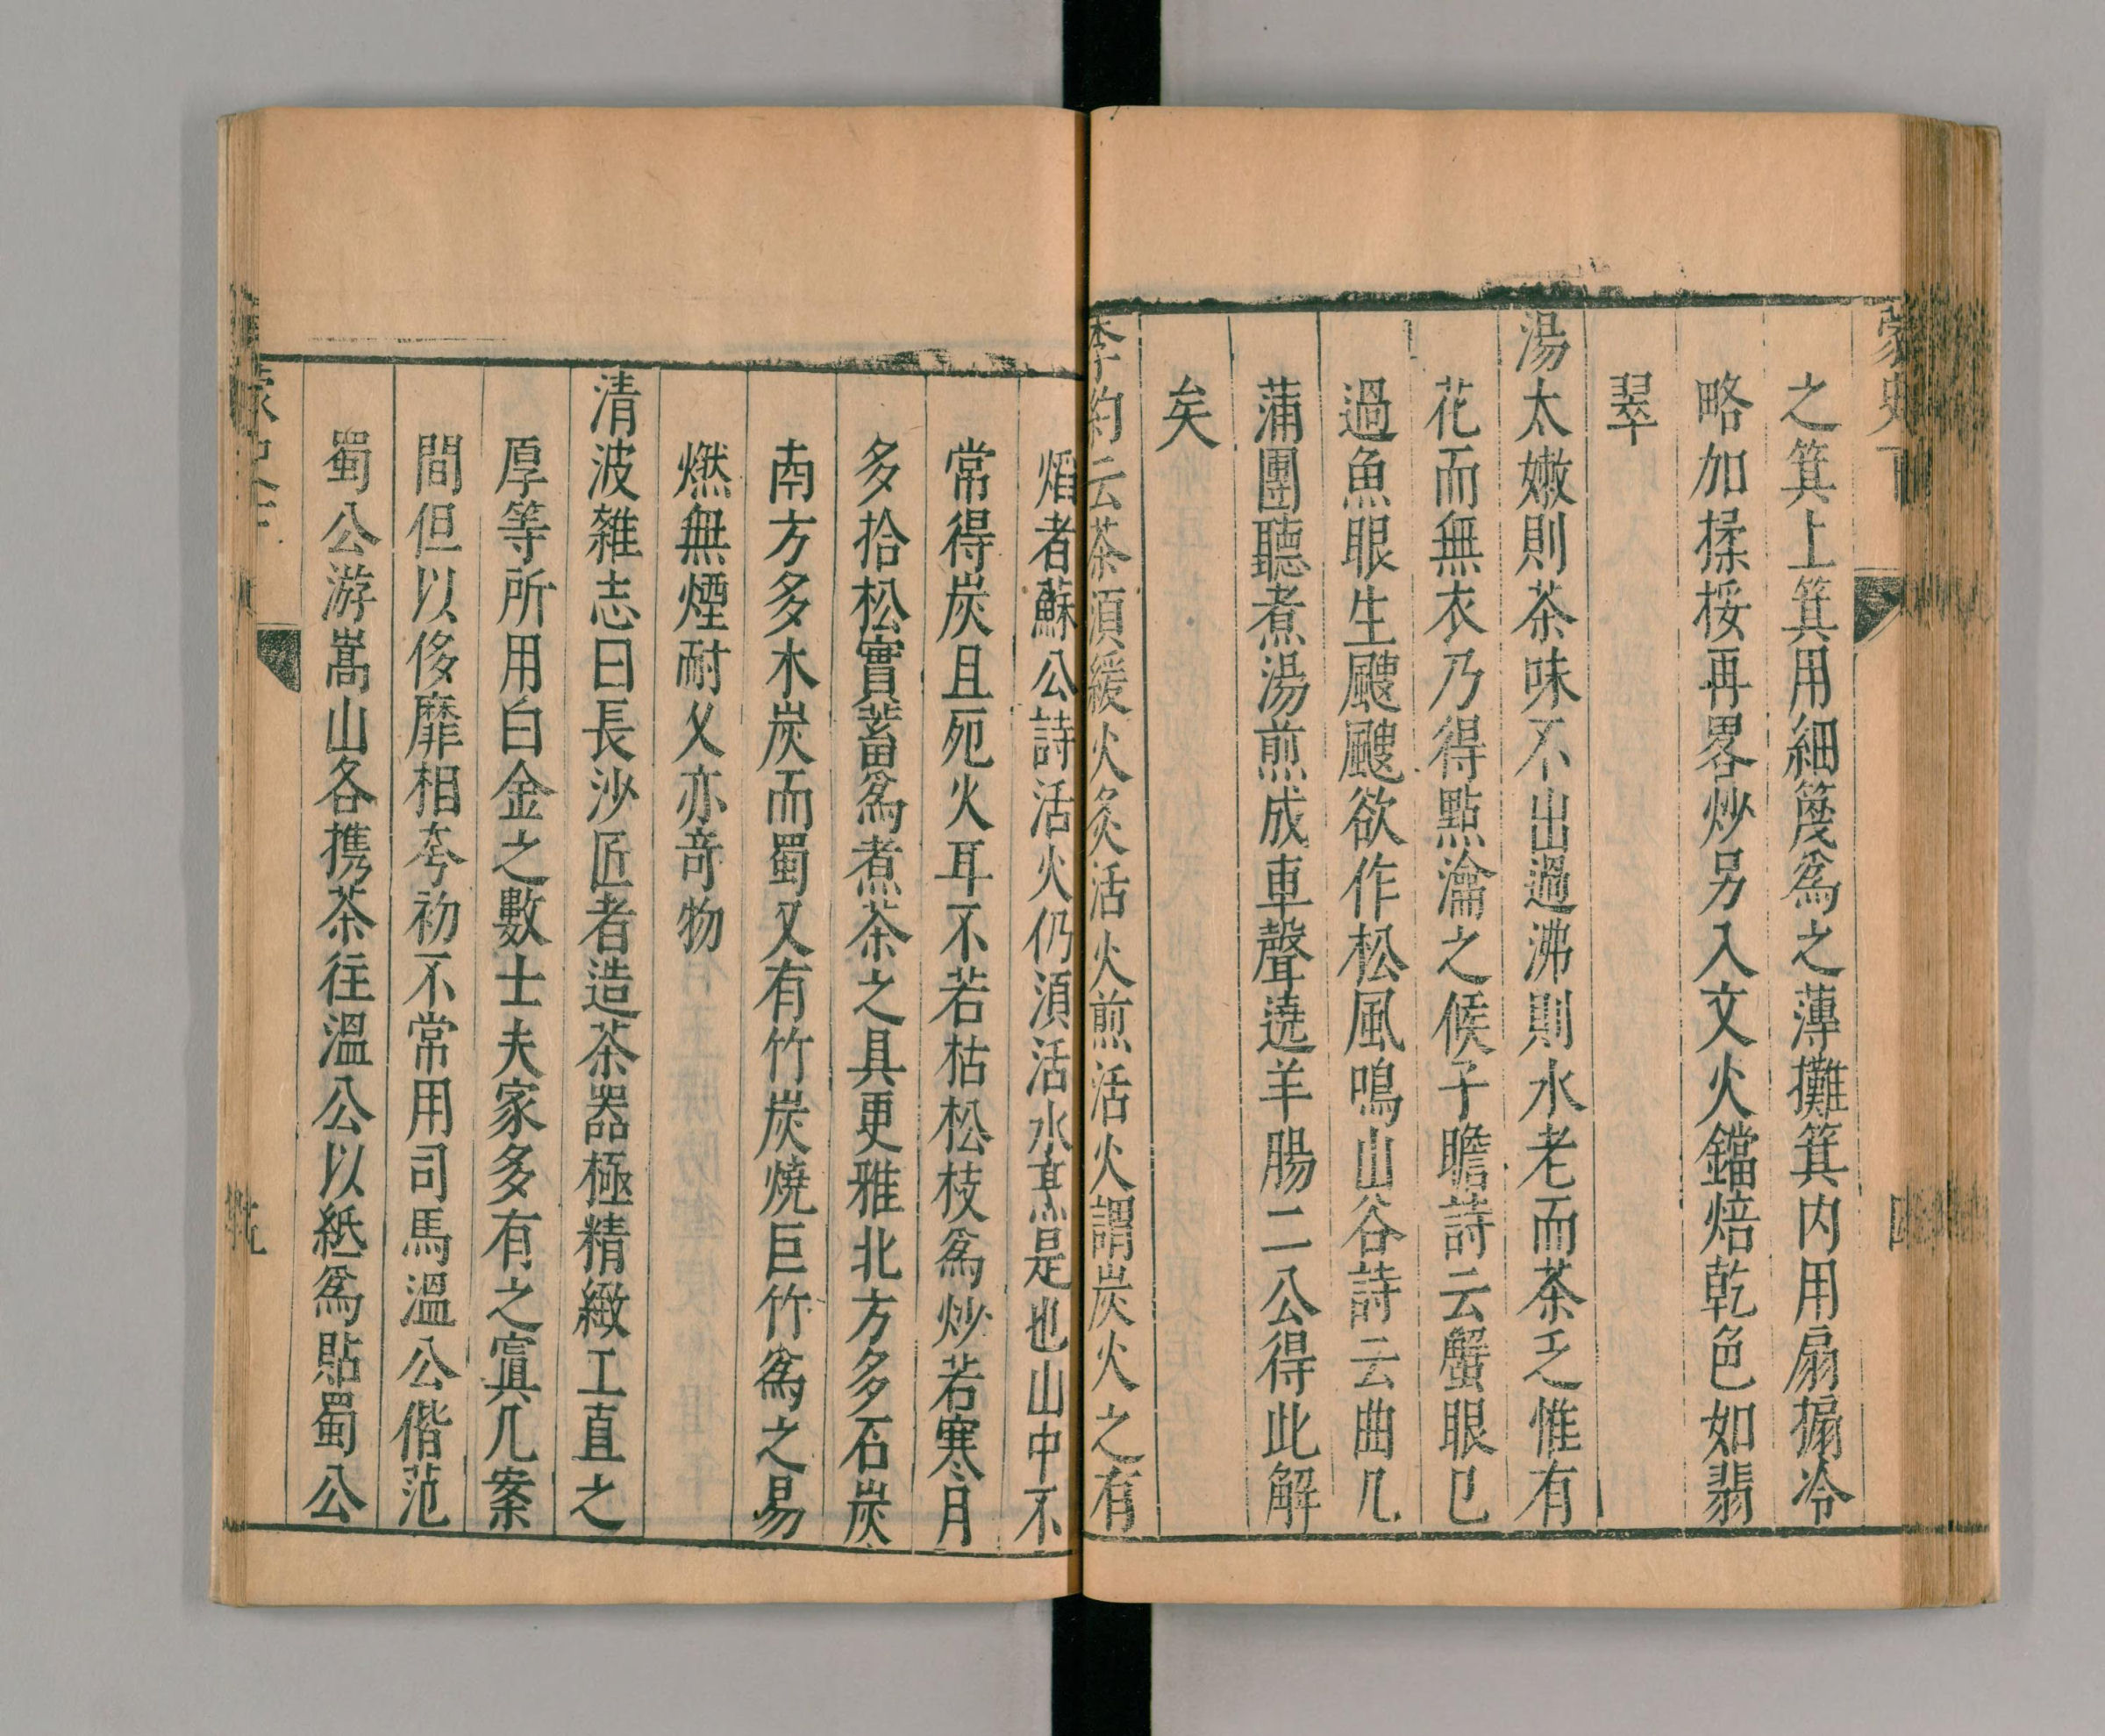 蒙史下
之箕上箕用細篾爲之薄攤箕内用扇搧冷
略加揉挼再畧炒另入文火鐺焙乾色如翡
翠
湯太嫩則茶味不出過沸則水老而茶乏惟有
花而無衣乃得點瀹之候子瞻詩云蟹眼已
過魚眼生颼颼欲作松風鳴山谷詩云曲几
蒲團聽煮湯煎成車聲遶羊腸二公得此解
矣
李約云茶湏緩火炙活火煎活火謂炭火之有
焰者蘇公詩活火仍湏活水烹是也山中不
常得炭且死火耳不若枯松枝爲妙若寒月
多拾松實蓄爲煮茶之具更雅北方多石炭
南方多木炭而蜀又有竹炭燒巨竹爲之易
燃無煙耐久亦竒物
清波雜志曰長沙匠者造茶器極精緻工直之
厚等所用白金之數士夫家多有之寘几案
間但以侈靡相夸初不常用司馬溫公偕范
蜀公游嵩山各携茶往溫公以紙爲貼蜀公